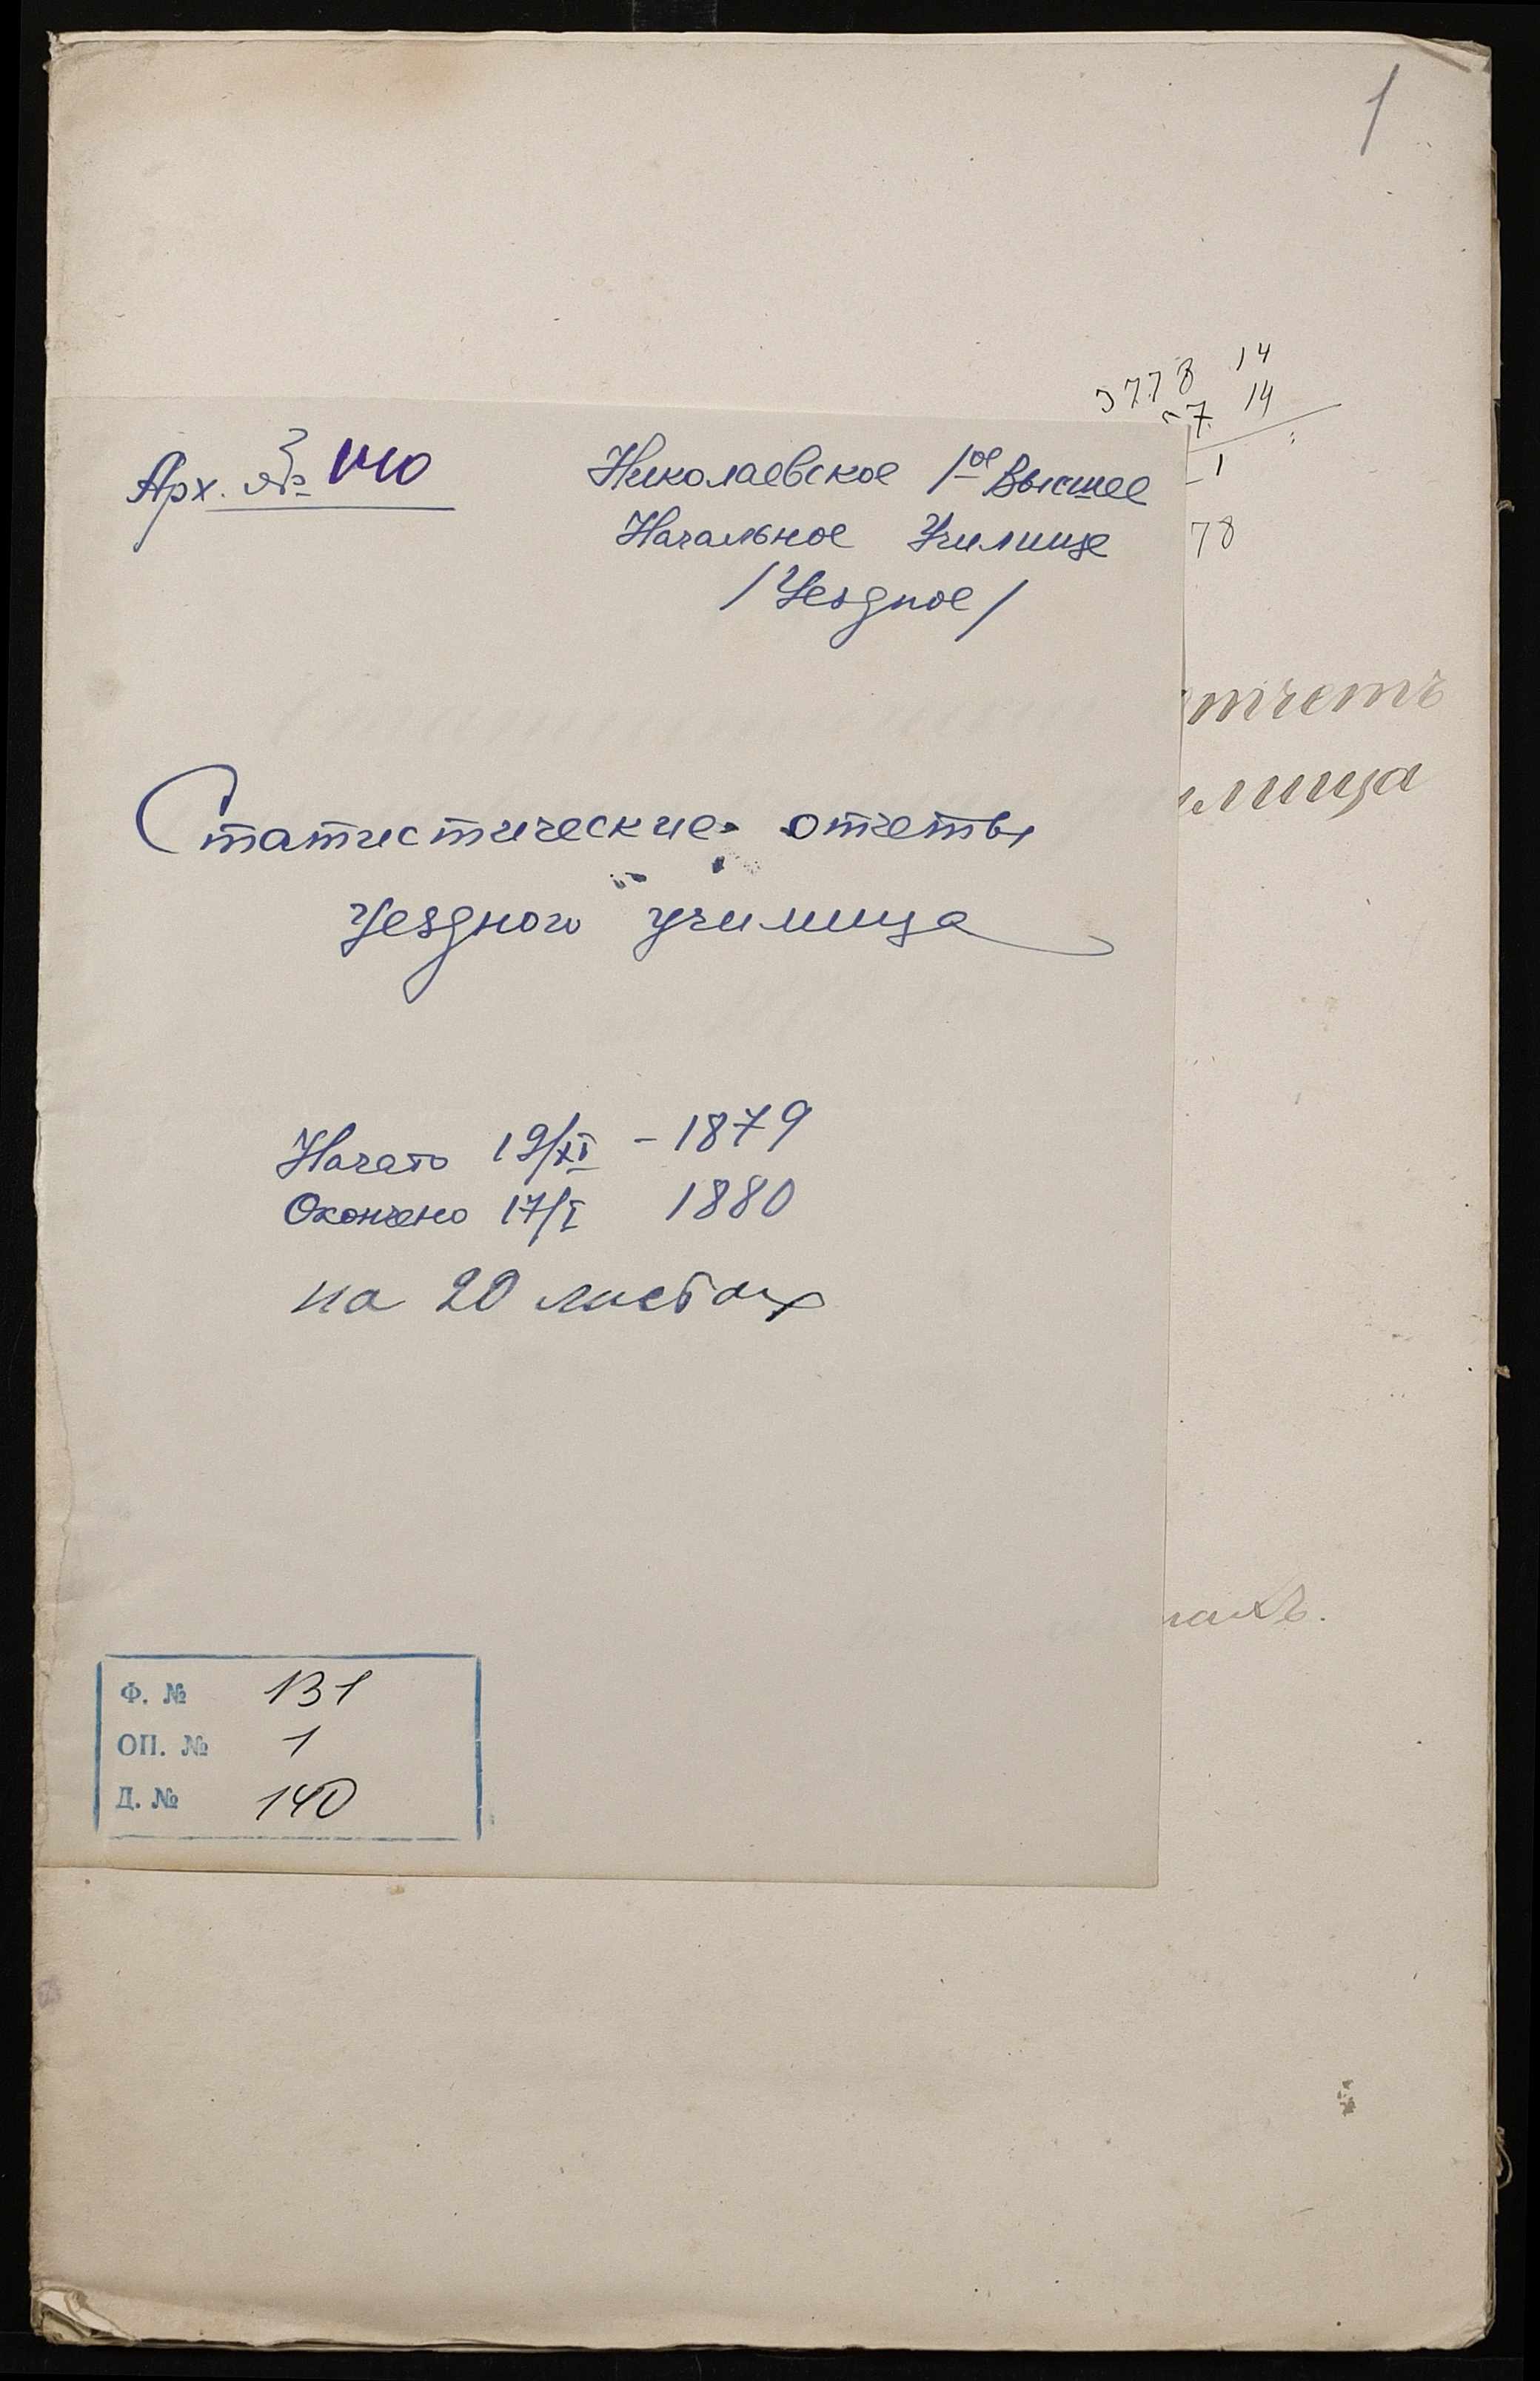 1
3778 14
7. 14
1
78
Арх. № 140
Николаевское 1ое Высшее
Начальное Училище
/Уездное/
Статистические отчеты
уездного училища
Начато 19/XI - 1879
Окончено 17/I 1880
на 20 листах
Ф. № 131
ОП. № 1
Д. № 140